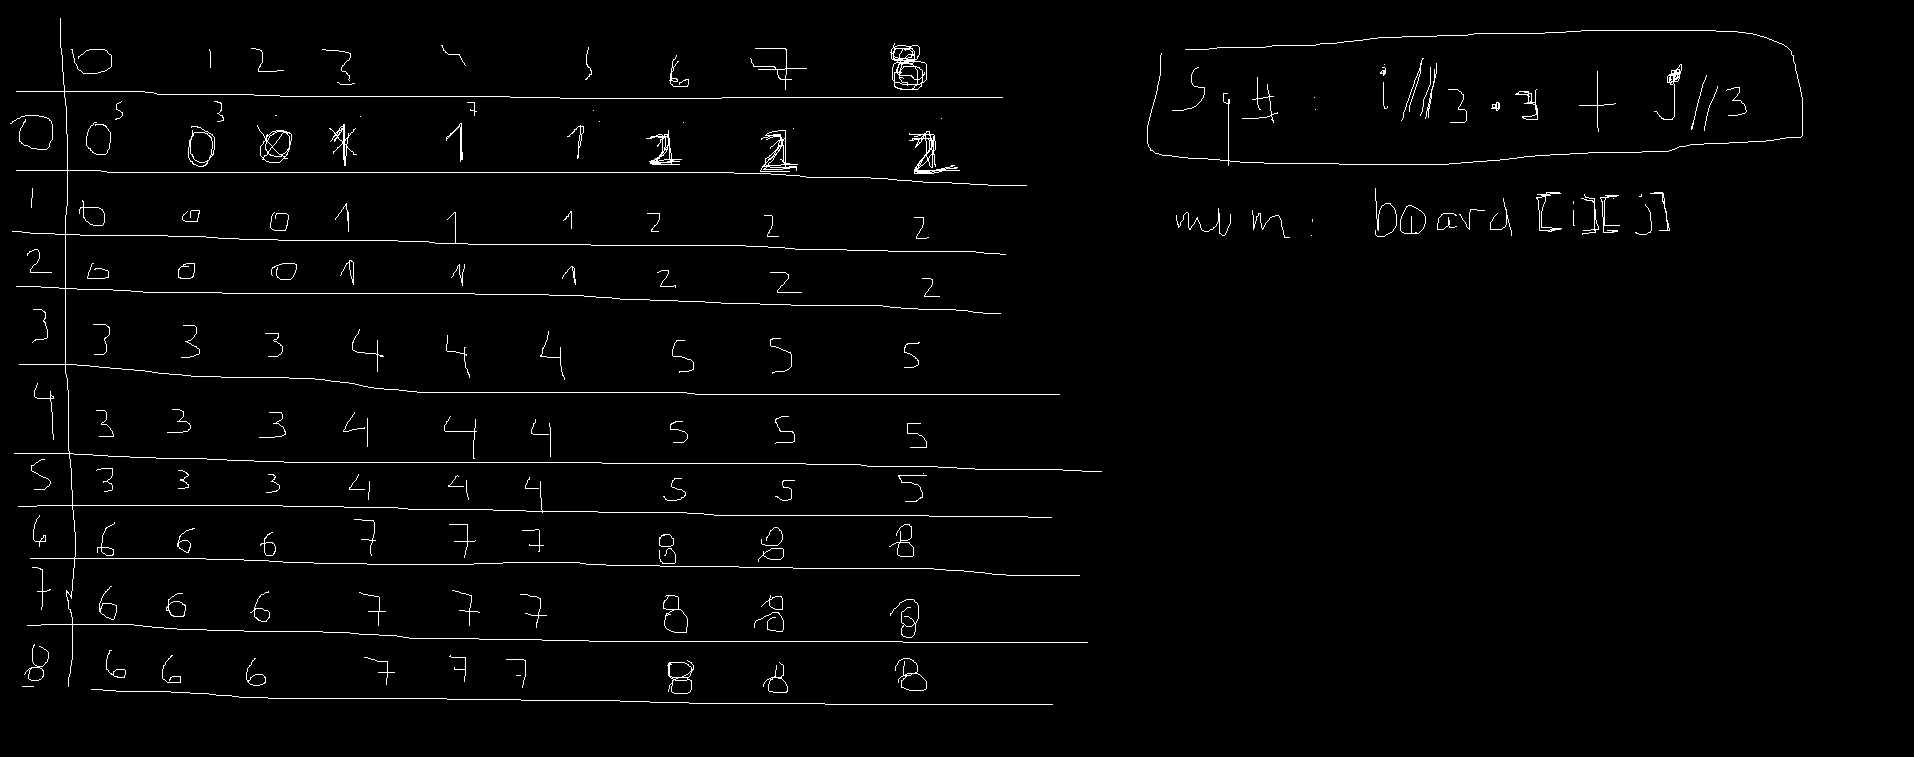 0 1 2 3 4 5 6 7 8
5 3 7
0 0 0 0 1 1 1 2 2 2
1 0 0 0 1 1 1 2 2 2
2 0 0 0 1 1 1 2 2 2
3 3 3 3 4 4 4 5 5 5
4 3 3 3 4 4 4 5 5 5
5 3 3 3 4 4 4 5 5 5
6 6 6 6 7 7 7 8 8 8
7 6 6 6 7 7 7 8 8 8
8 6 6 6 7 7 7 8 8 8
Sq#: i//3·3 + j//3
num: board[i][j]